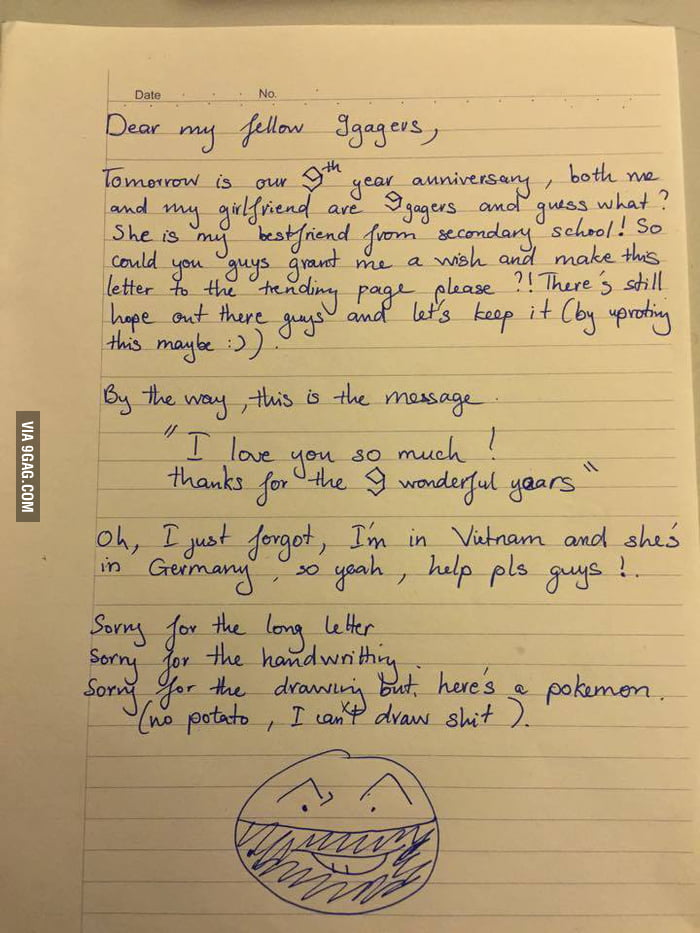 Date No.
Dear my fellow 9gagers,
Tomorrow is our 9th year anniversary, both me
and my girlfriend are 9gagers and guess what?
She is my bestfriend from secondary school! So
could you guys grant me a wish and make this
letter to the trending page please ?! There's still
hope out there guys and let's keep it (by upvoting
this maybe :)).
By the way, this is the message.
"I love you so much!
thanks for the 9 wonderful years"
Oh, I just forgot, I'm in Vietnam and she's
in Germany, so yeah, help pls guys!.
Sorry for the long letter
Sorry for the handwritting.
Sorry for the drawing but, here's a pokemon.
(no potato, I can't draw shit).
VIA 9GAG.COM